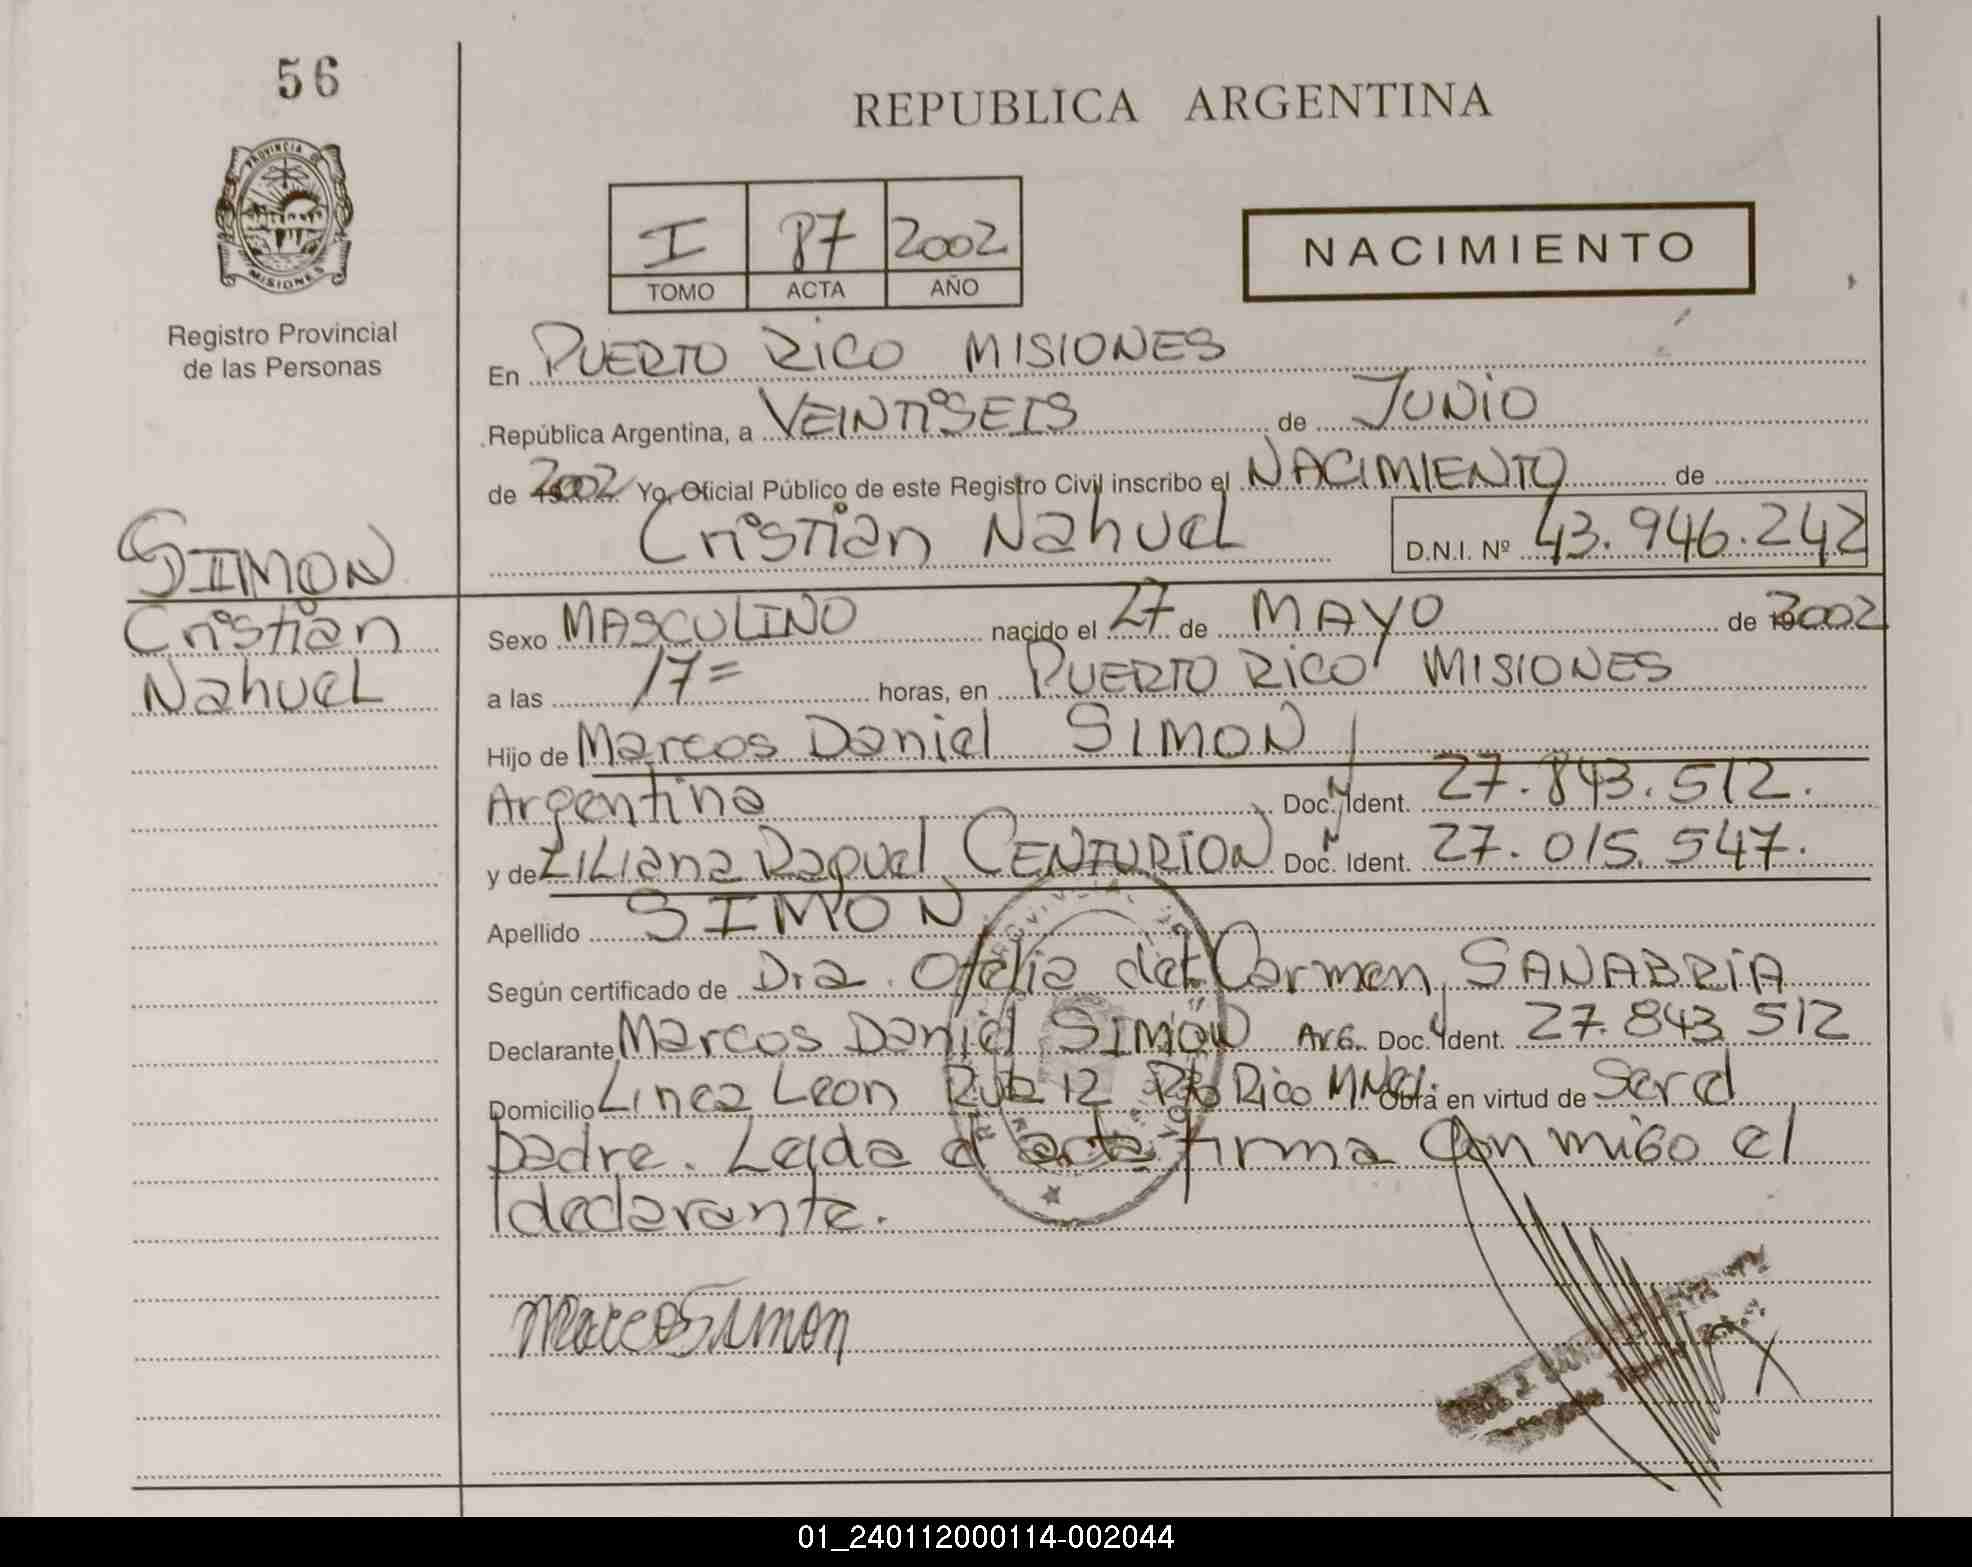 56
REPUBLICA ARGENTINA
PROVINCIA DE
MISIONES
Registro Provincial
de las Personas
I 87 2002
TOMO ACTA AÑO
NACIMIENTO
En PUERTO RICO MISIONES
República Argentina, a VEINTISEIS de JUNIO
de 2002 Yo, Oficial Público de este Registro Civil inscribo el NACIMIENTO de
Cristian Nahuel D.N.I. Nº 43.946.242
SIMON
Cristian
Nahuel
Sexo MASCULINO nacido el 27 de MAYO de 2002
a las 17= horas, en PUERTO RICO MISIONES
Hijo de Marcos Daniel SIMON
Argentina Doc. Ident. 27.843.512.
y de Liliana Raquel CENTURION Doc. Ident. 27.015.547.
Apellido SIMON
Según certificado de Dra. Ofelia del Carmen SANABRIA
Declarante Marcos Daniel SIMON ARG. Doc. Ident. 27.843 512
Domicilio Linea Leon Ruta 12 Pto Rico MNes. Obra en virtud de Ser el
padre. Leida el acta firma Conmigo el
declarante.
Marcos Simon
01_240112000114-002044